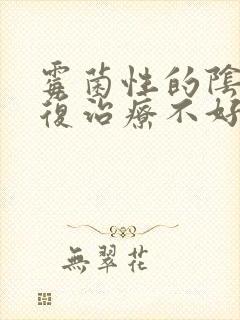 霉菌性的陰
復治療不好
無翠花